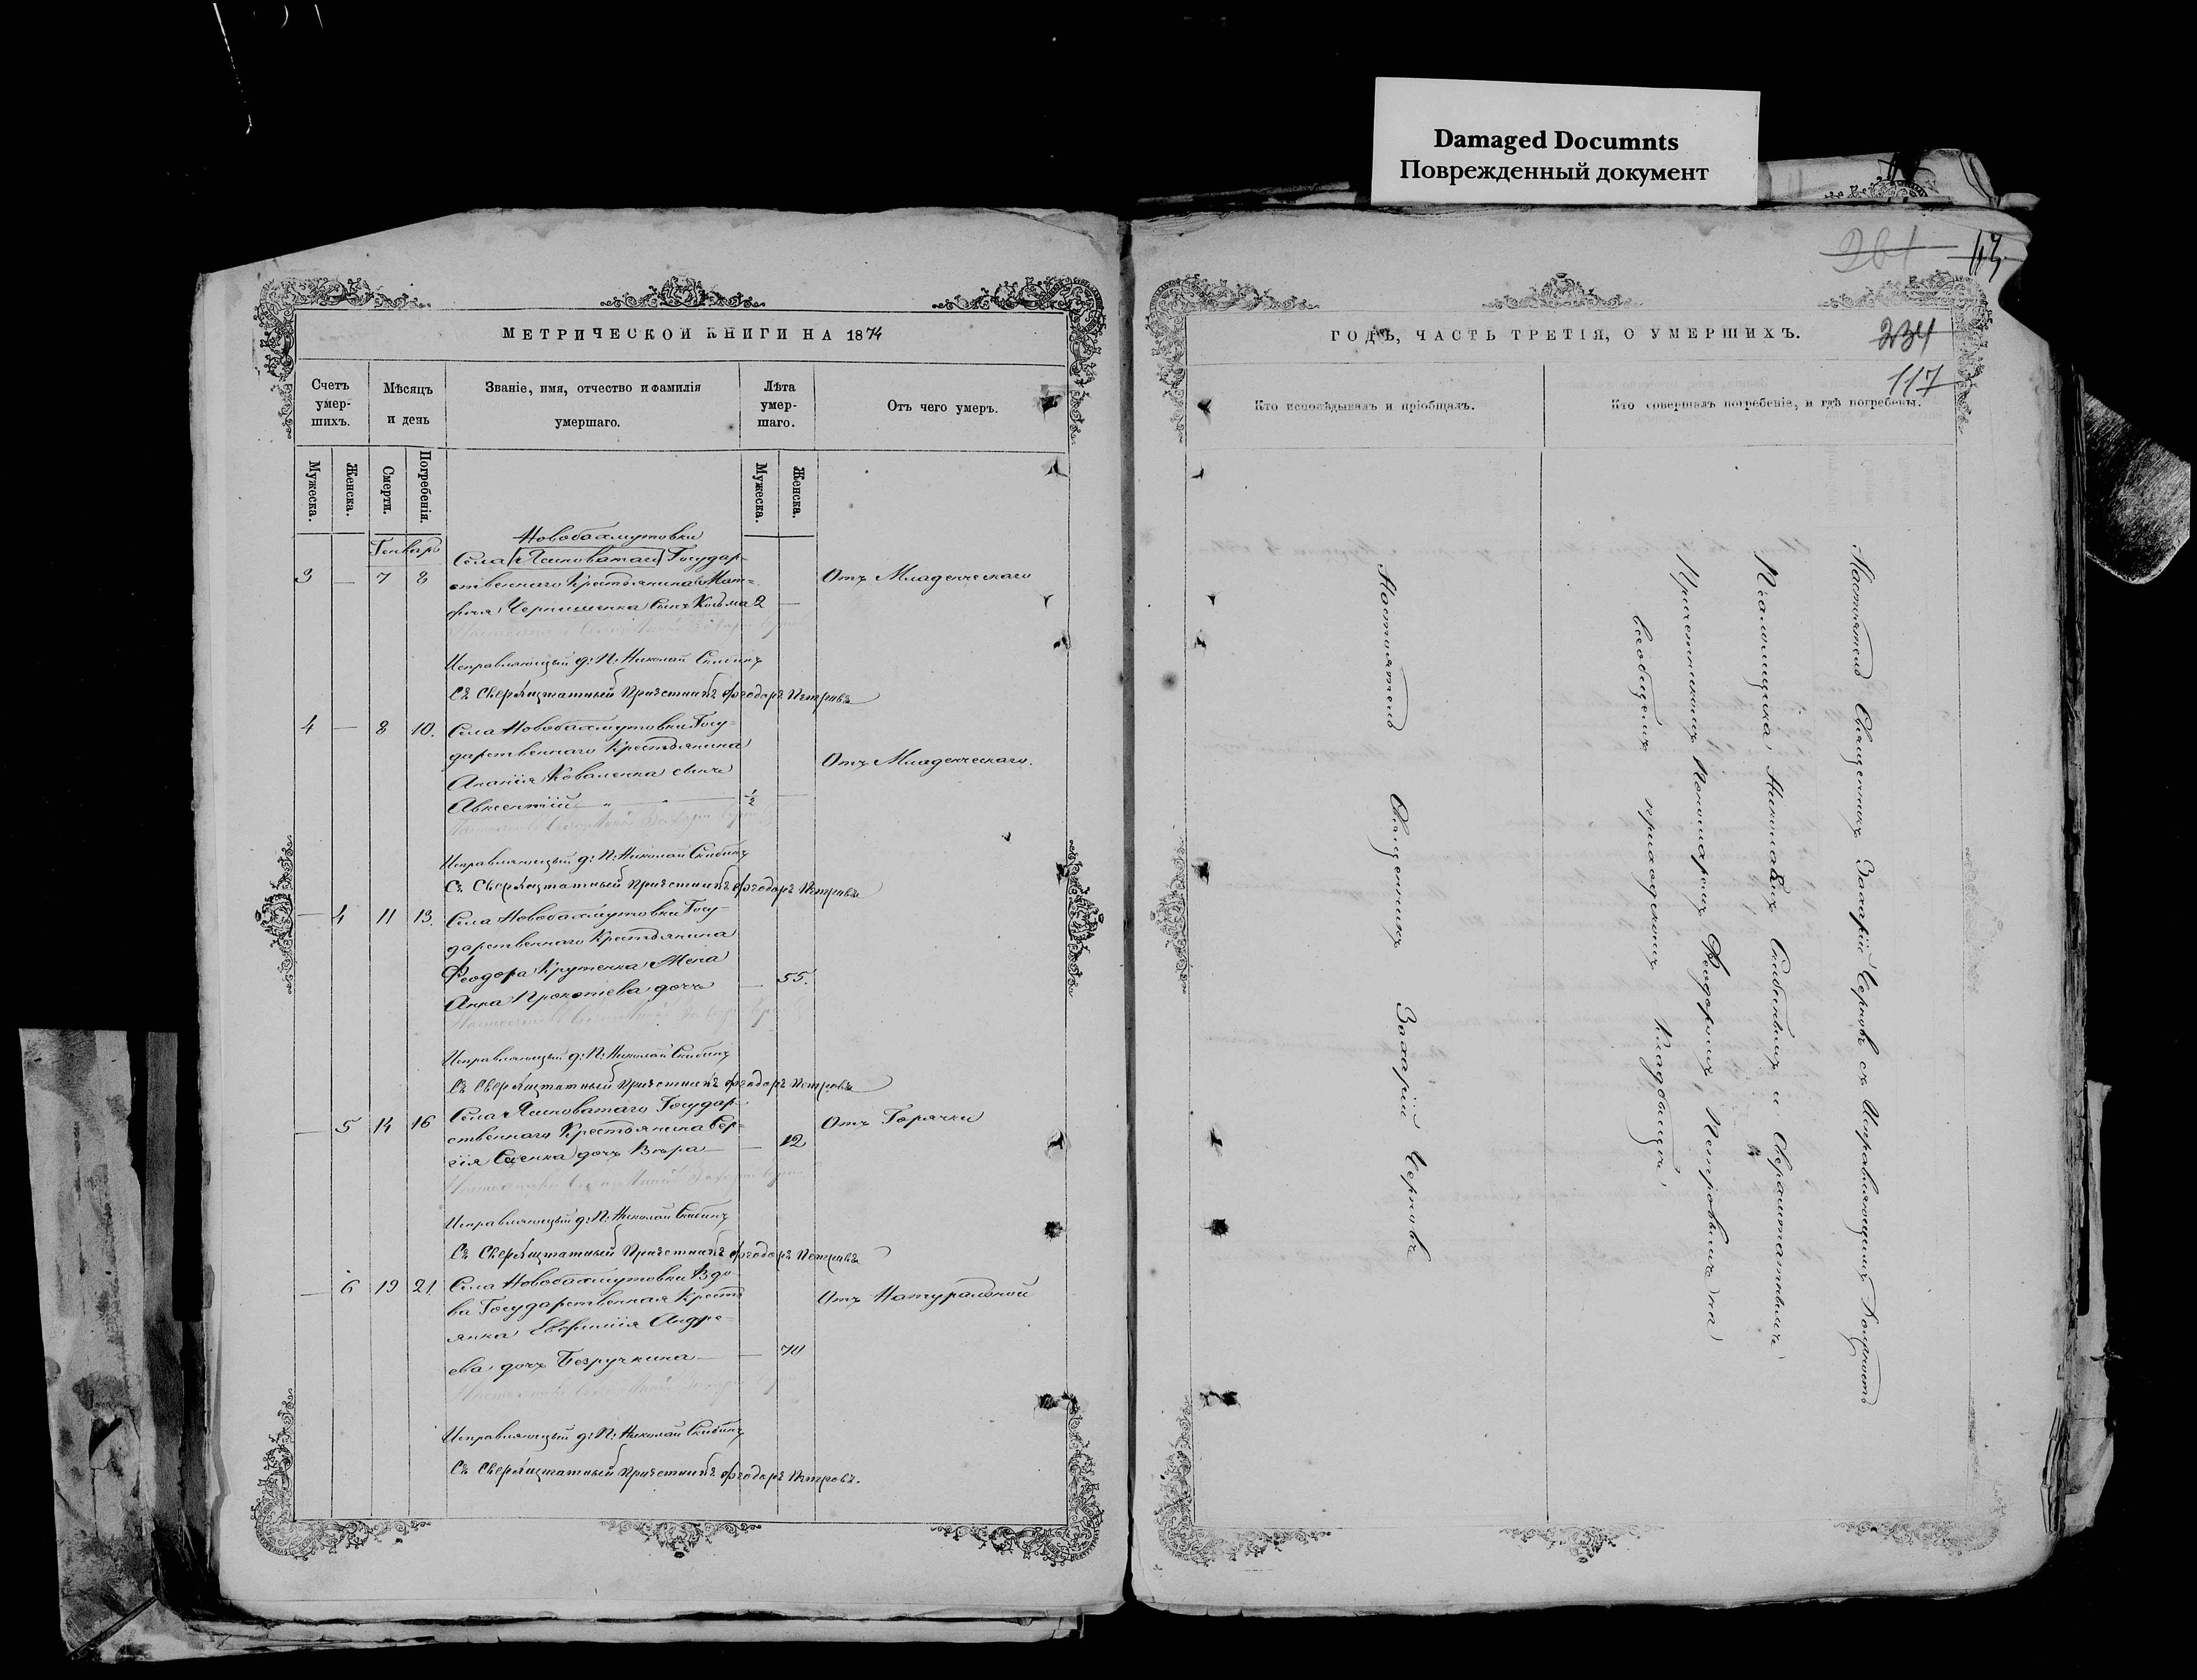 Damaged Documnts
Поврежденный документ
МЕТРИЧЕСКОЙ КНИГИ НА 1874
Счетъ умер-шихъ.
Мѣсяцъ и день
Званіе, имя, отчество и фамилія умершаго.
Лѣта умер-шаго.
Отъ чего умеръ.
Мужеска.
Женска.
Смерти.
Погребенія.
Мужеска.
Женска.
Генваря
Новобахмутовки
Села Ясиноватаго Государ-
3 — 7 8 ственнаго Крестьянина Мат-
Отъ Младенческаго
фея Чернишенка сынъ Козьма 2 —
Исправляющій д: П: Николай Скибинъ
Съ Сверхштатный Причетникъ Феодоръ Петровъ
4 — 8 10. Села Новобахмутовки Госу-
дарственнаго Крестьянина
Отъ Младенческаго.
Ананія Коваленка сынъ
Авксентій — „ — ½ —
Исправляющій д: П: Николай Скибинъ
Съ Сверхштатный Причетникъ Феодоръ Петровъ
— 4 11 13. Села Новобахмутовки Госу-
дарственнаго Крестьянина
Феодора Крутенка Жена
Анна Прокотіева дочь — 55.
Исправляющій д: П: Николай Скибинъ
Съ Сверхштатный Причетникъ Феодоръ Петровъ
— 5 14 16 Села Ясиноватаго Государ-
ственнаго Крестьянина Сер-
Отъ Горячки
гія Саенка дочь Вѣра — — 12
Исправляющій д: П: Николай Скибинъ
Съ Сверхштатный Причетникъ Феодоръ Петровъ
— 6 19 21 Села Новобахмутовки Вдо-
ва Государственная Кресть
Отъ Натуральной
янка Евфимія Андре-
ева дочь Безручкина — — 70
Исправляющій д: П: Николай Скибинъ
Съ Сверхштатный Причетникъ Феодоръ Петровъ.
261
117
ГОДЪ, ЧАСТЬ ТРЕТІЯ, О УМЕРШИХЪ.
234
117
Кто исповѣдывалъ и пріобщалъ.
Кто совершалъ погребеніе, и гдѣ погребены.
Настоятель Священникъ Захарій Черновъ
Настоятель Священникъ Захарій Черновъ съ Исправляющимъ Должность
Псаломщика Николаемъ Скибинымъ и Сверхштатнымъ
Причетникомъ Пономаремъ Феодоромъ Петровымъ на
всеобщемъ приходскомъ Кладбищѣ